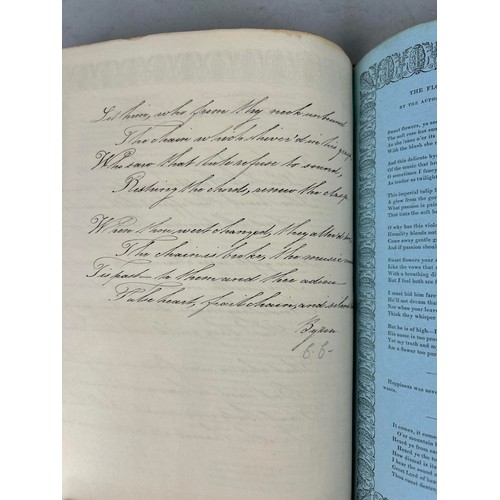 Let him, who from thy neck unbound
The chain which shiver'd in his grasp,
Who saw that lute refuse to sound,
Restring the chords, renew the clasp
When thou wert changed, they alter'd
The chain is broke, the music
Tis past to them and thee adieu
False heart, frail chain, and silent
Byron
THE FLO
BY THE AUTHO
Sweet flowers, ye are
The soft rose has
As she
With the blush she
And this delicate hy
Of the music that
O sometimes I
As tender as twilight
This imperial tulip
A glow from the
What passion is
That tints the soft
If why has this viole
Humility blends
Come away gentle
And if passion shoul
Sweet flowers your
Like the vows that
With a breathing
But I feel both are
I must bid him fare
He'll not dream that
Nor when your leave
Think they whisper
But he is of high
His name is too prou
Yet my truth and m
Are a dower too poor
Happiness was neve
It comes, it comes
O'er mountain
Heard ye from
Heard ye the
How dismal it
I hear the sound
Great Lord of
Thou canst